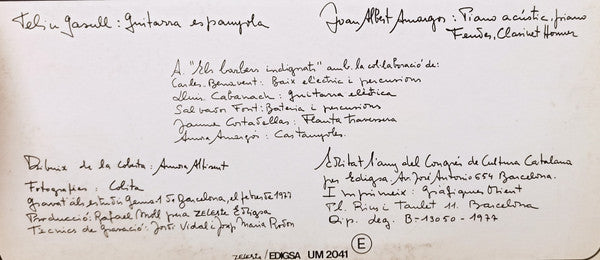 Feliu Gasull : Guitarra espanyola
Joan Albert Amargos : Piano acústic, piano
Fender, Clarinet Horner
A "Els barbers indignats" amb la col·laboració de:
Carles Benavent : Baix elèctric i percusions
Lluis Cabanach : guitarra elèctica
Salvador Font : Bateria i percusions
Jaume Cortadellas : Flauta travessera
Anna Amargós : Castanyoles.
Dibuix de la coberta : Anna Altisent
Fotografies : Colita
gravat als estudis Gema 1 de Barcelona, el febrer de 1977
Producció : Rafael Moll per a Zeleste Edigsa
Tecnics de gravació : Jordi Vidal i Josep Maria Rodon
Editat l'any del Congrés de Cultura Catalana
per Edigsa. Av. José Antonio 654 Barcelona.
Imprimeix : gràfiques Orient
Pl. Rius i Taulet 11. Barcelona
Dip. leg. B-13050-1977
zeleste/EDIGSA UM 2041 E